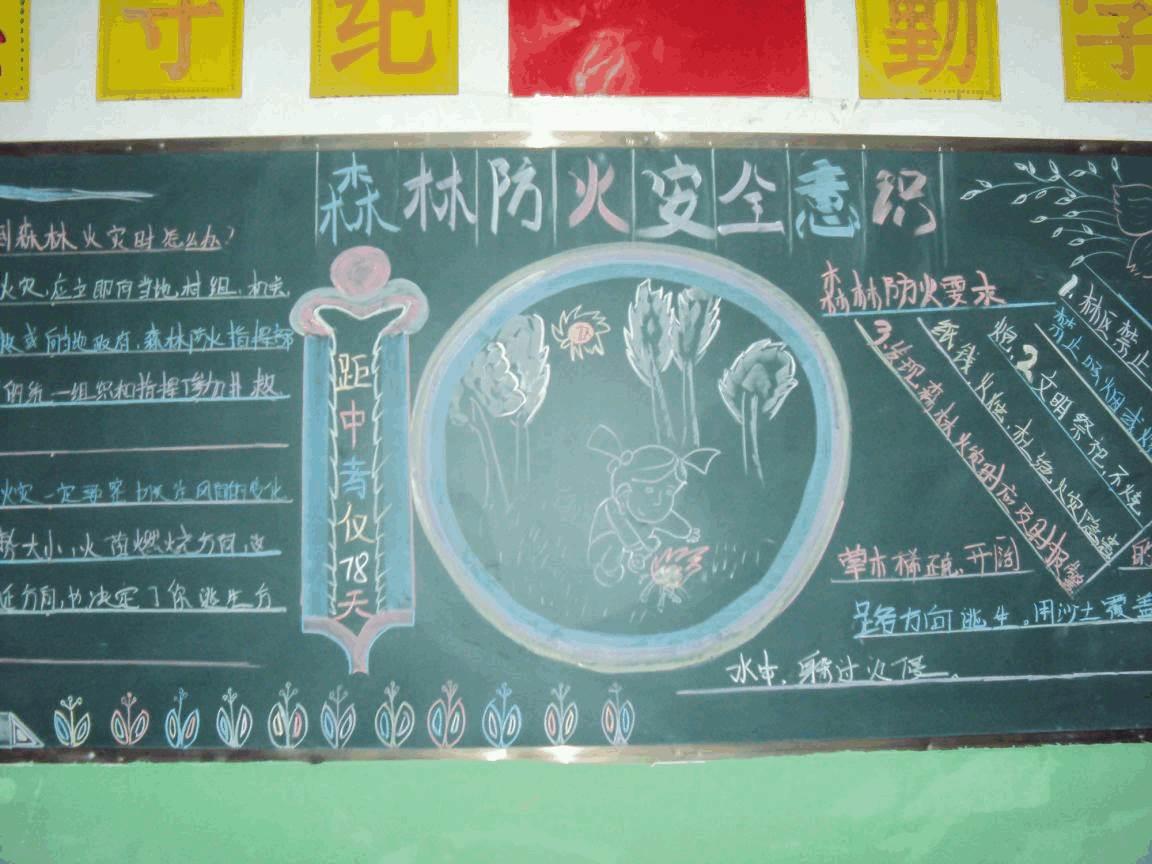 守 纪 勤 学
森林防火安全意识
到森林火灾时怎么办?
火灾,应立即向当地村组、机关
或向当地政府、森林防火指挥部
的统一组织和指挥下参加扑救
火灾一定要密切关注风向的变化
大小,火的燃烧方向
延方向,也决定了你逃生方
距中考仅78天
森林防火要求
1.林区禁止
禁止吸烟或
2.文明祭祀,不烧
纸钱、火烛,杜绝火灾隐患
3.发现森林火灾时应及时报警
草木稀疏、开阔 的
路方向逃生。用沙土覆盖
水中,躲过火